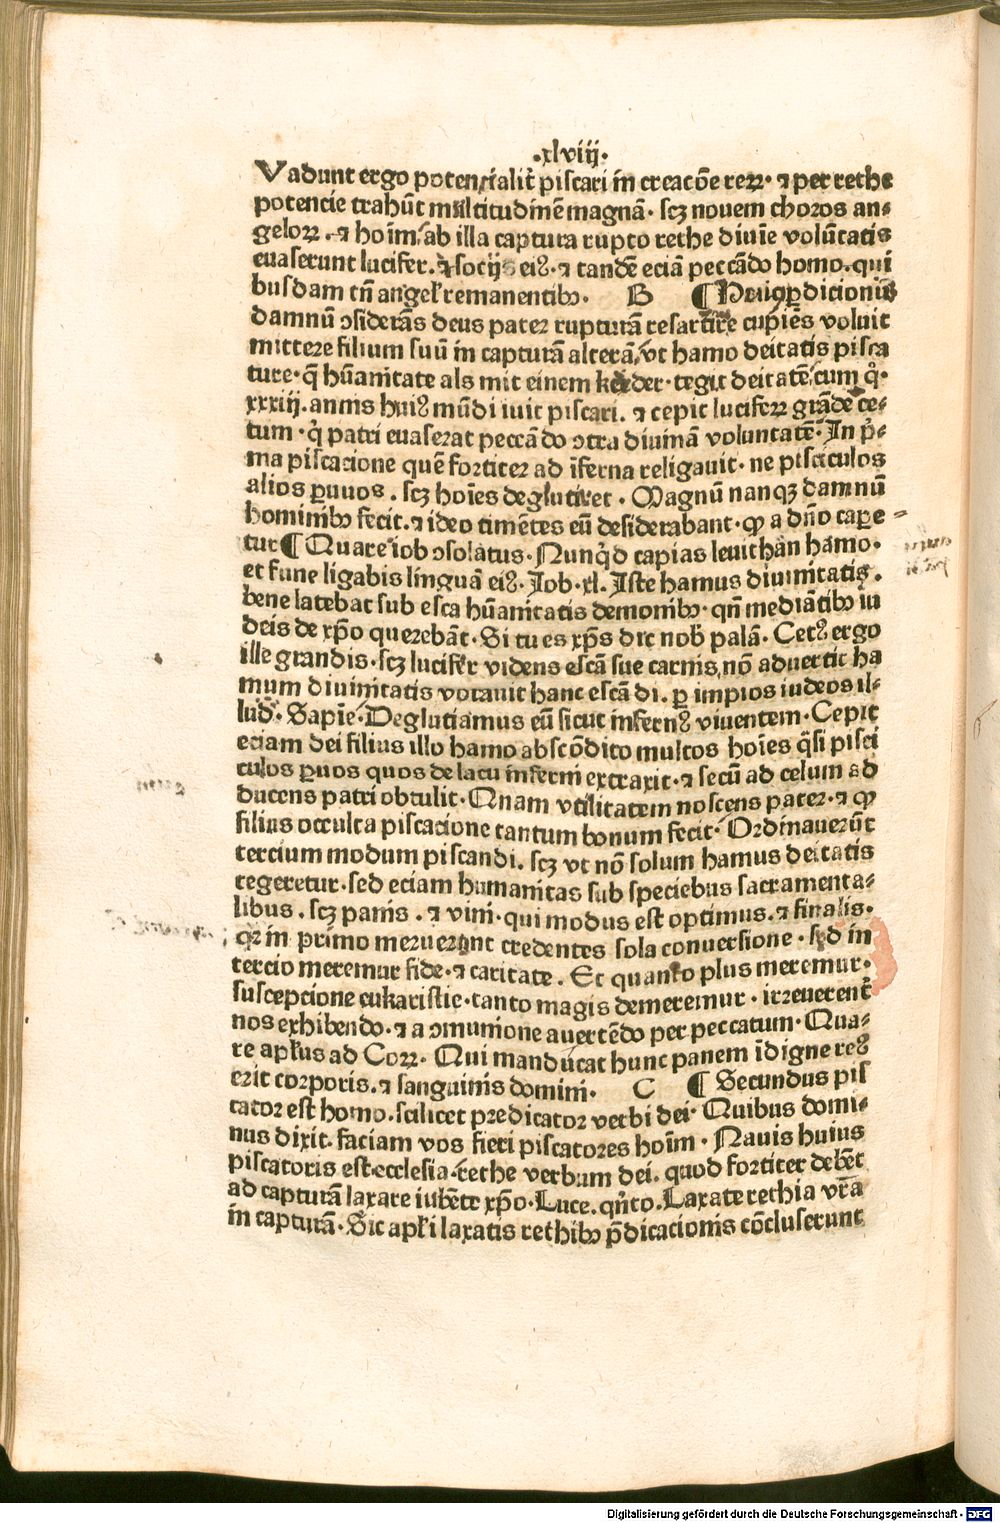 .xlviij.
Vadunt ergo potencialit̓ piscari in creacōe reꝝ. ⁊ per rethe
potencie trahūt multitudinē magnā. scꝫ novem choros an⸗
geloꝝ. ⁊ hoim̄. ab illa captura rupto rethe diuīe volūtatis
euaserunt lucifer. ⁊ socij eiꝰ. ⁊ tandē eciā peccādo homo. qui
busdam tn̄ angeł remanentibꝫ. B ¶ ꝑdicionis
damnū ↄsiderās deus pater rupturā resartire cupiēs voluit
mittere filium suū in capturā alterā, vt hamo deitatis pisca
ture. q̄ hūanitate als mit einem kerder. tegit deitatē, cum q°.
xxxiij. annis huiꝰ mūdi iuit piscari. ⁊ cepit luciferꝝ grādē ce⸗
tum. q̇ patri euaserat peccādo ↄtra diuinā voluntatē. In p̄⸗
ma piscacione quē fortiter ad īferna religauit. ne pisciculos
alios ꝑuuos. scꝫ hoīes deglutiret. Magnū nanqꝫ damnū
hominibꝫ fecit. ⁊ ideo timētes eū desiderabant. ꝙ a dn̄o cape⸗
tur ¶ Quare iob ↄsolatus. Nunq̇d capias leuithān hamo.
et fune ligabis linguā eiꝰ. Job. xl. Iste hamus diuinitatis.
bene latebat sub esca hūanitatis demonibꝫ. qn̄ mediātibꝫ iu
deis de xp̄o querebāt. Si tu es xp̄s dic nob̄ palā. Cetꝰ ergo
ille grandis. scꝫ lucifer videns escā sue carnis, nō aduertit ha
mum diuinitatis vorauit hanc escā di. ꝑ impios iudeos il⸗
lud. Sapīe. Deglutiamus eū sicut infernꝰ viuentem. Cepit
eciam dei filius illo hamo abscōdito multos hoīes q̄si pisci
culos ꝑuos quos de lacu inferni extraxit. ⁊ secū ad celum ad
ducens patri obtulit. Quam vtilitatem noscens pater. ⁊ ꝙ
filius occulta piscacione tantum bonum fecit. Ordinauerūt
tercium modum piscandi. scꝫ vt nō solum hamus deitatis
tegeretur. sed eciam humanitas sub speciebus sacramenta⸗
libus. scꝫ panis. ⁊ vini. qui modus est optimus. ⁊ finalis.
qꝛ in primo meruerunt credentes sola conuersione. sed in
tercio meremur fide. ⁊ caritate. Et quanto plus meremur.
suscepcione eukaristie. tanto magis demeremur. irreuerent̓
nos exhibendo. ⁊ a ↄmunione auertēdo per peccatum. Qua⸗
re apłus ad Corꝝ. Qui manducat hunc panem īdigne reꝰ
erit corporis. ⁊ sanguinis domini. C ¶ Secundus pis
cator est homo. scilicet predicator verbi dei. Quibus domi⸗
nus dixit. faciam vos fieri piscatores hoim̄. Nauis huius
piscatoris est. ecclesia. rethe verbum dei. quod fortiter debēt
ad capturā laxare iubēte xp̄o. Luce. qn̄to. Laxate rethia vr̄a
in capturā. Sic apłi laxatis rethibꝫ p̄dicacionis cōcluserunt
Digitalisierung gefördert durch die Deutsche Forschungsgemeinschaft - DFG